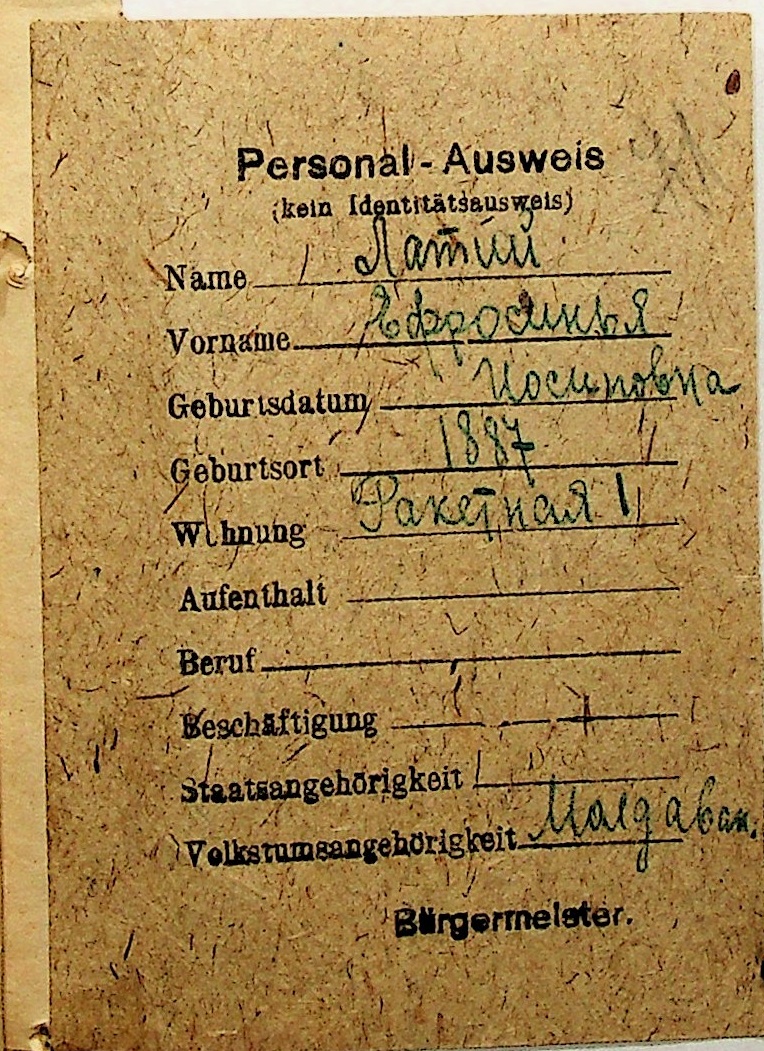 71
Personal-Ausweis
(kein Identitätsausweis)
Name Латий
Vorname Ефросинья
Geburtsdatum Иосиповна
Geburtsort 1887
Wohnung Ракетная 1
Aufenthalt
Beruf
Beschäftigung
Staatsangehörigkeit
Volkstumsangehörigkeit Малдаван.
Bürgermeister.